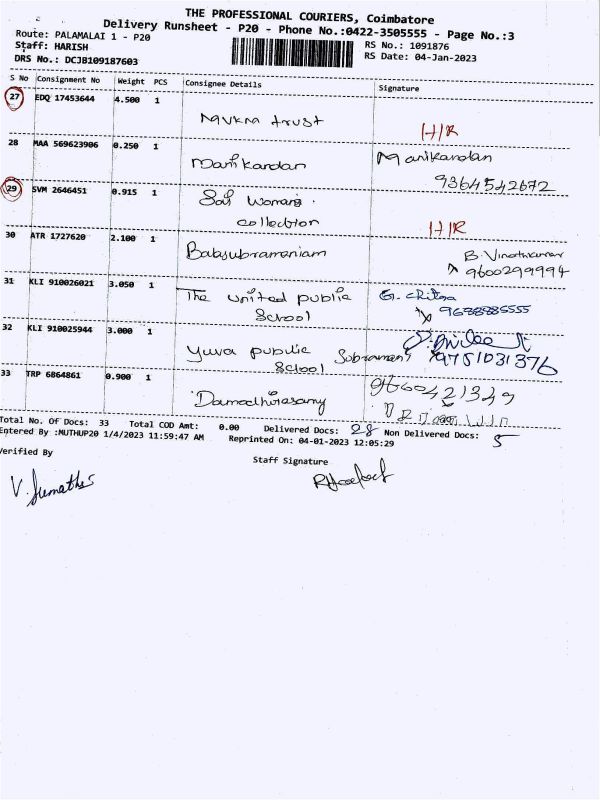 THE PROFESSIONAL COURIERS, Coimbatore
Delivery Runsheet - P20 - Phone No.:0422-3505555 - Page No.:3
Route: PALAMALAI 1 - P20
RS No.: 1091876
Staff: HARISH
RS Date: 04-Jan-2023
DRS No.: DCJB109187603
S No Consignment No Weight PCS Consignee Details Signature
27 EDQ 17453644 4.500 1
trust H/R
28 MAA 569623906 0.250 1
Manikandan Manikandan
9364542672
29 SVM 2646451 0.915 1
Sai Womans
collection H/R
30 ATR 1727620 2.100 1
Balasubramaniam B.
9600299994
31 KLI 910026021 3.050 1
The united public
School 9688885555
32 KLI 910025944 3.000 1
Yuva public
School 9751031376
33 TRP 6864861 0.900 1
9660421349
Total No. Of Docs: 33 Total COD Amt: 0.00 Delivered Docs: 28 Non Delivered Docs: 5
Entered By :MUTHUP20 1/4/2023 11:59:47 AM Reprinted On: 04-01-2023 12:05:29
Verified By
Staff Signature